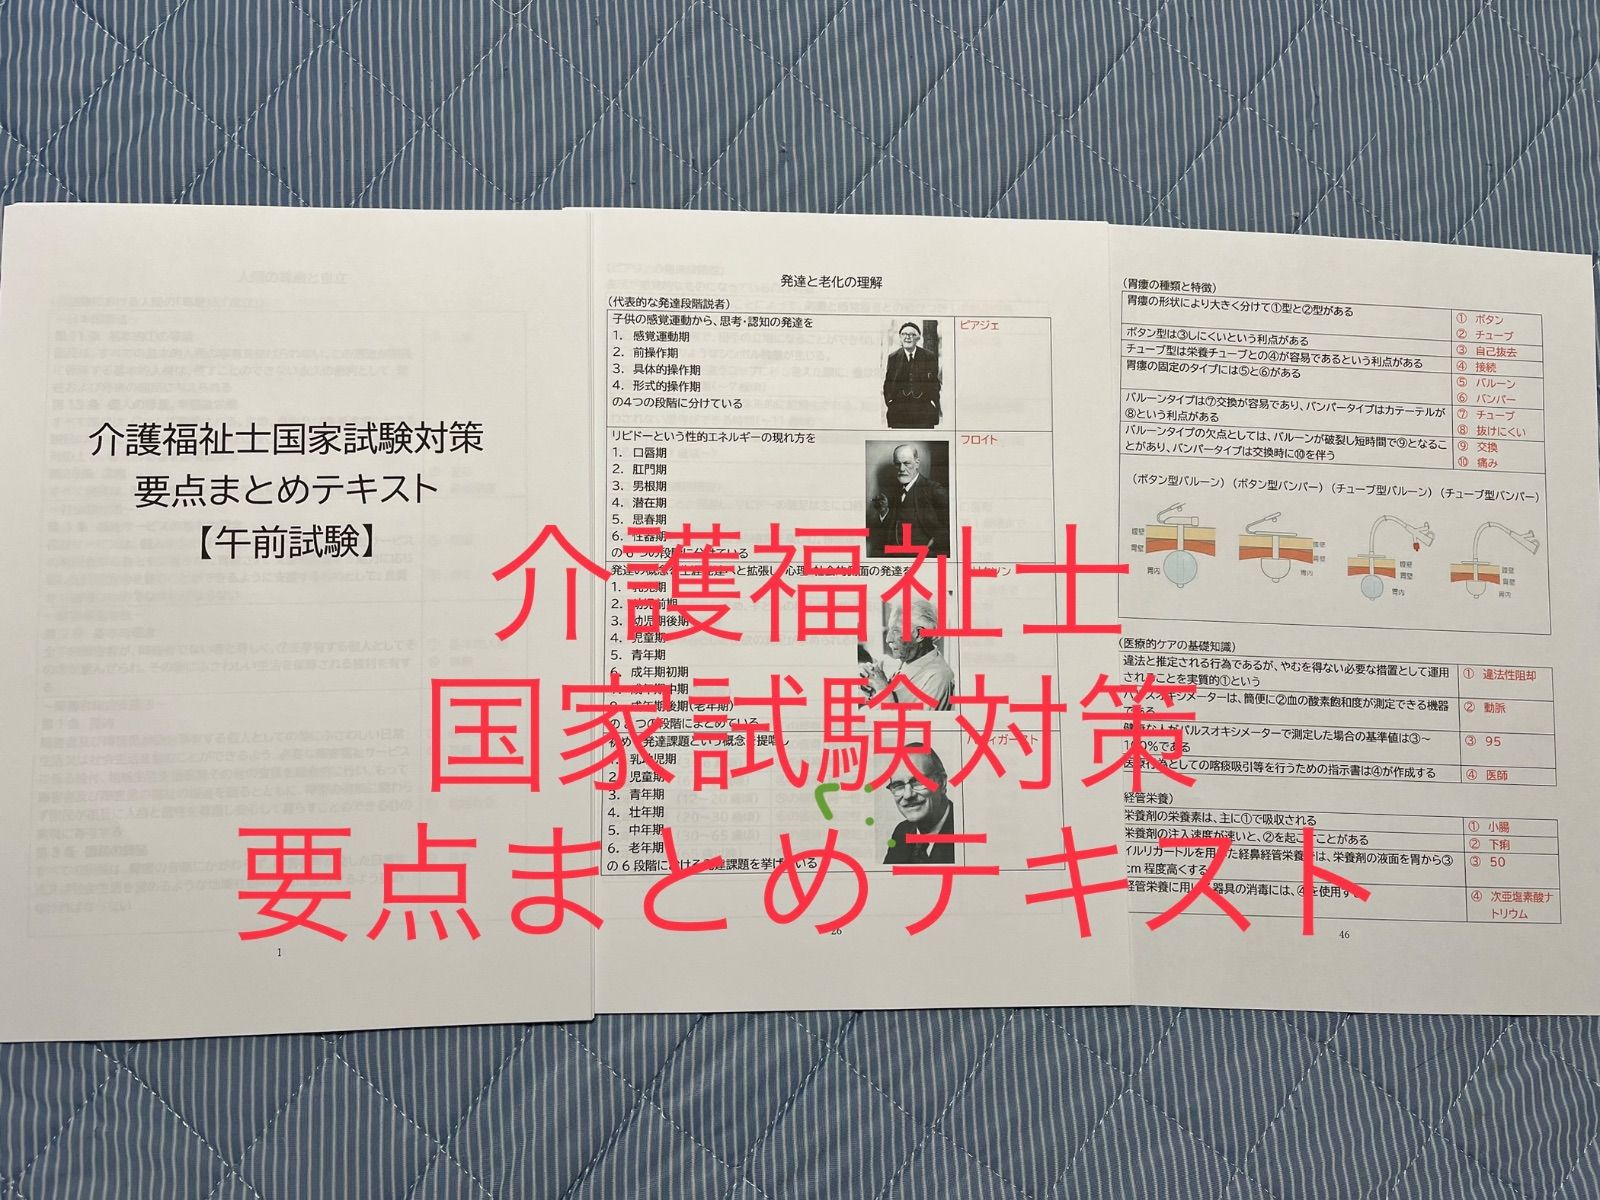 介護福祉士国家試験対策
要点まとめテキスト
【午前試験】
1
発達と老化の理解
（代表的な発達段階説者）
子供の感覚運動から、思考・認知の発達を
1. 感覚運動期
2. 前操作期
3. 具体的操作期
4. 形式的操作期
の4つの段階に分けている
ピアジェ
リビドーという性的エネルギーの現れ方を
1. 口唇期
2. 肛門期
3. 男根期
4. 潜在期
5. 思春期
6. 性器期
の6つの段階に分けている
フロイト
1. 乳児期
2. 幼児前期
3. 幼児期後期
4. 児童期
5. 青年期
6. 成年期初期
7. 成年期中期
8. 成年期後期(老年期)
の8つの段階にまとめている
初めて発達課題という概念を提唱し
1. 乳幼児期
2. 児童期
3. 青年期
4. 壮年期
5. 中年期
6. 老年期
の6段階における発達課題を挙げている
26
（胃瘻の種類と特徴）
胃瘻の形状により大きく分けて①型と②型がある
ボタン型は③しにくいという利点がある
チューブ型は栄養チューブとの④が容易であるという利点がある
胃瘻の固定のタイプには⑤と⑥がある
バルーンタイプは⑦交換が容易であり、バンパータイプはカテーテルが
⑧という利点がある
バルーンタイプの欠点としては、バルーンが破裂し短時間で⑨となるこ
とがあり、バンパータイプは交換時に⑩を伴う
① ボタン
② チューブ
③ 自己抜去
④ 接続
⑤ バルーン
⑥ バンパー
⑦ チューブ
⑧ 抜けにくい
⑨ 交換
⑩ 痛み
（ボタン型バルーン）（ボタン型バンパー）（チューブ型バルーン）（チューブ型バンパー）
腹壁
胃壁
胃内
腹壁
胃壁
胃内
腹壁
胃壁
胃内
腹壁
胃壁
胃内
（医療的ケアの基礎知識）
違法と推定される行為であるが、やむを得ない必要な措置として運用
されることを実質的①という
① 違法性阻却
パルスオキシメーターは、簡便に②血の酸素飽和度が測定できる機器
である
② 動脈
健康な人がパルスオキシメーターで測定した場合の基準値は③～
100%である
③ 95
医療行為としての喀痰吸引等を行うための指示書は④が作成する
④ 医師
経管栄養）
栄養剤の栄養素は、主に①で吸収される
① 小腸
栄養剤の注入速度が速いと、②を起こすことがある
② 下痢
イルリガートルを用いた経鼻経管栄養では、栄養剤の液面を胃から③
cm程度高くする
③ 50
経管栄養に用いる器具の消毒には、④を使用する
④ 次亜塩素酸ナ
トリウム
46
介護福祉士
国家試験対策
要点まとめテキスト